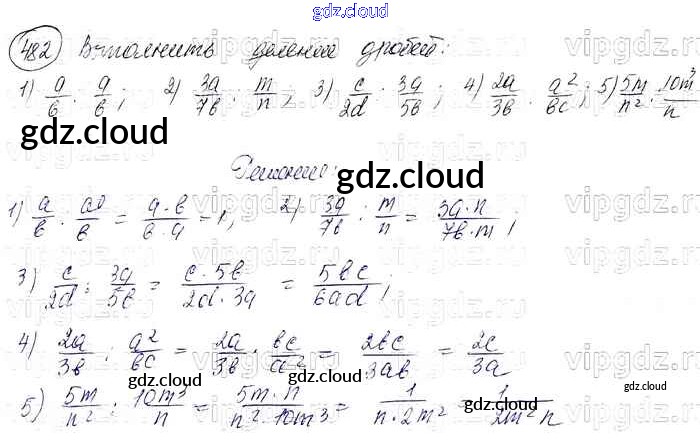 gdz.cloud
482 Выполнить деление дробей:
1) a/b : a/b; 2) 3a/7b : m/n; 3) c/2d : 3a/5b; 4) 2a/3b : a²/bc; 5) 5m/n² : 10m³/n
gdz.cloud
gdz.cloud
Решение:
gdz.cloud
1) a/b : a/b = a·b/b·a = 1; 2) 3a/7b : m/n = 3a·n/7b·m;
3) c/2d : 3a/5b = c·5b/2d·3a = 5bc/6ad;
4) 2a/3b : a²/bc = 2a/3b · bc/a² = 2bc/3ab = 2c/3a
gdz.cloud
gdz.cloud
gdz.cloud
5) 5m/n² : 10m³/n = 5m·n/n²·10m³ = 1/n·2m² = 1/2m²n
gdz.cloud
gdz.cloud